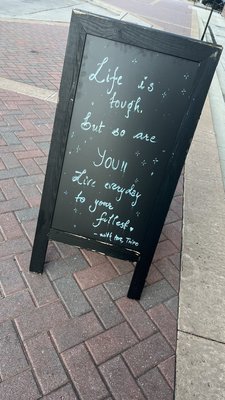 Life is
tough.
But so are
YOU!!
Live everyday
to your
fullest
- with love, Taino